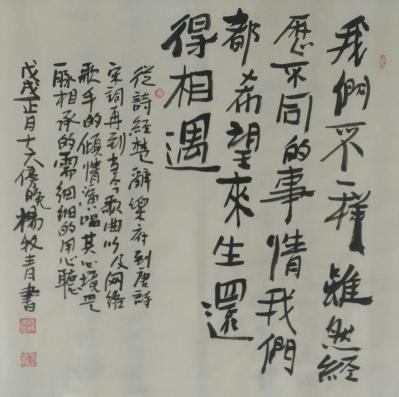 我們不一樣雖然經
歷不同的事情我們
都希望來生還
得相遇
從詩經楚辭樂府到唐詩
宋詞再到古今歌曲以及网络
歌手的傾情演唱其心境是
一脈相承的需細細的用心聽
戊戌正月十六傍晚楊牧青書